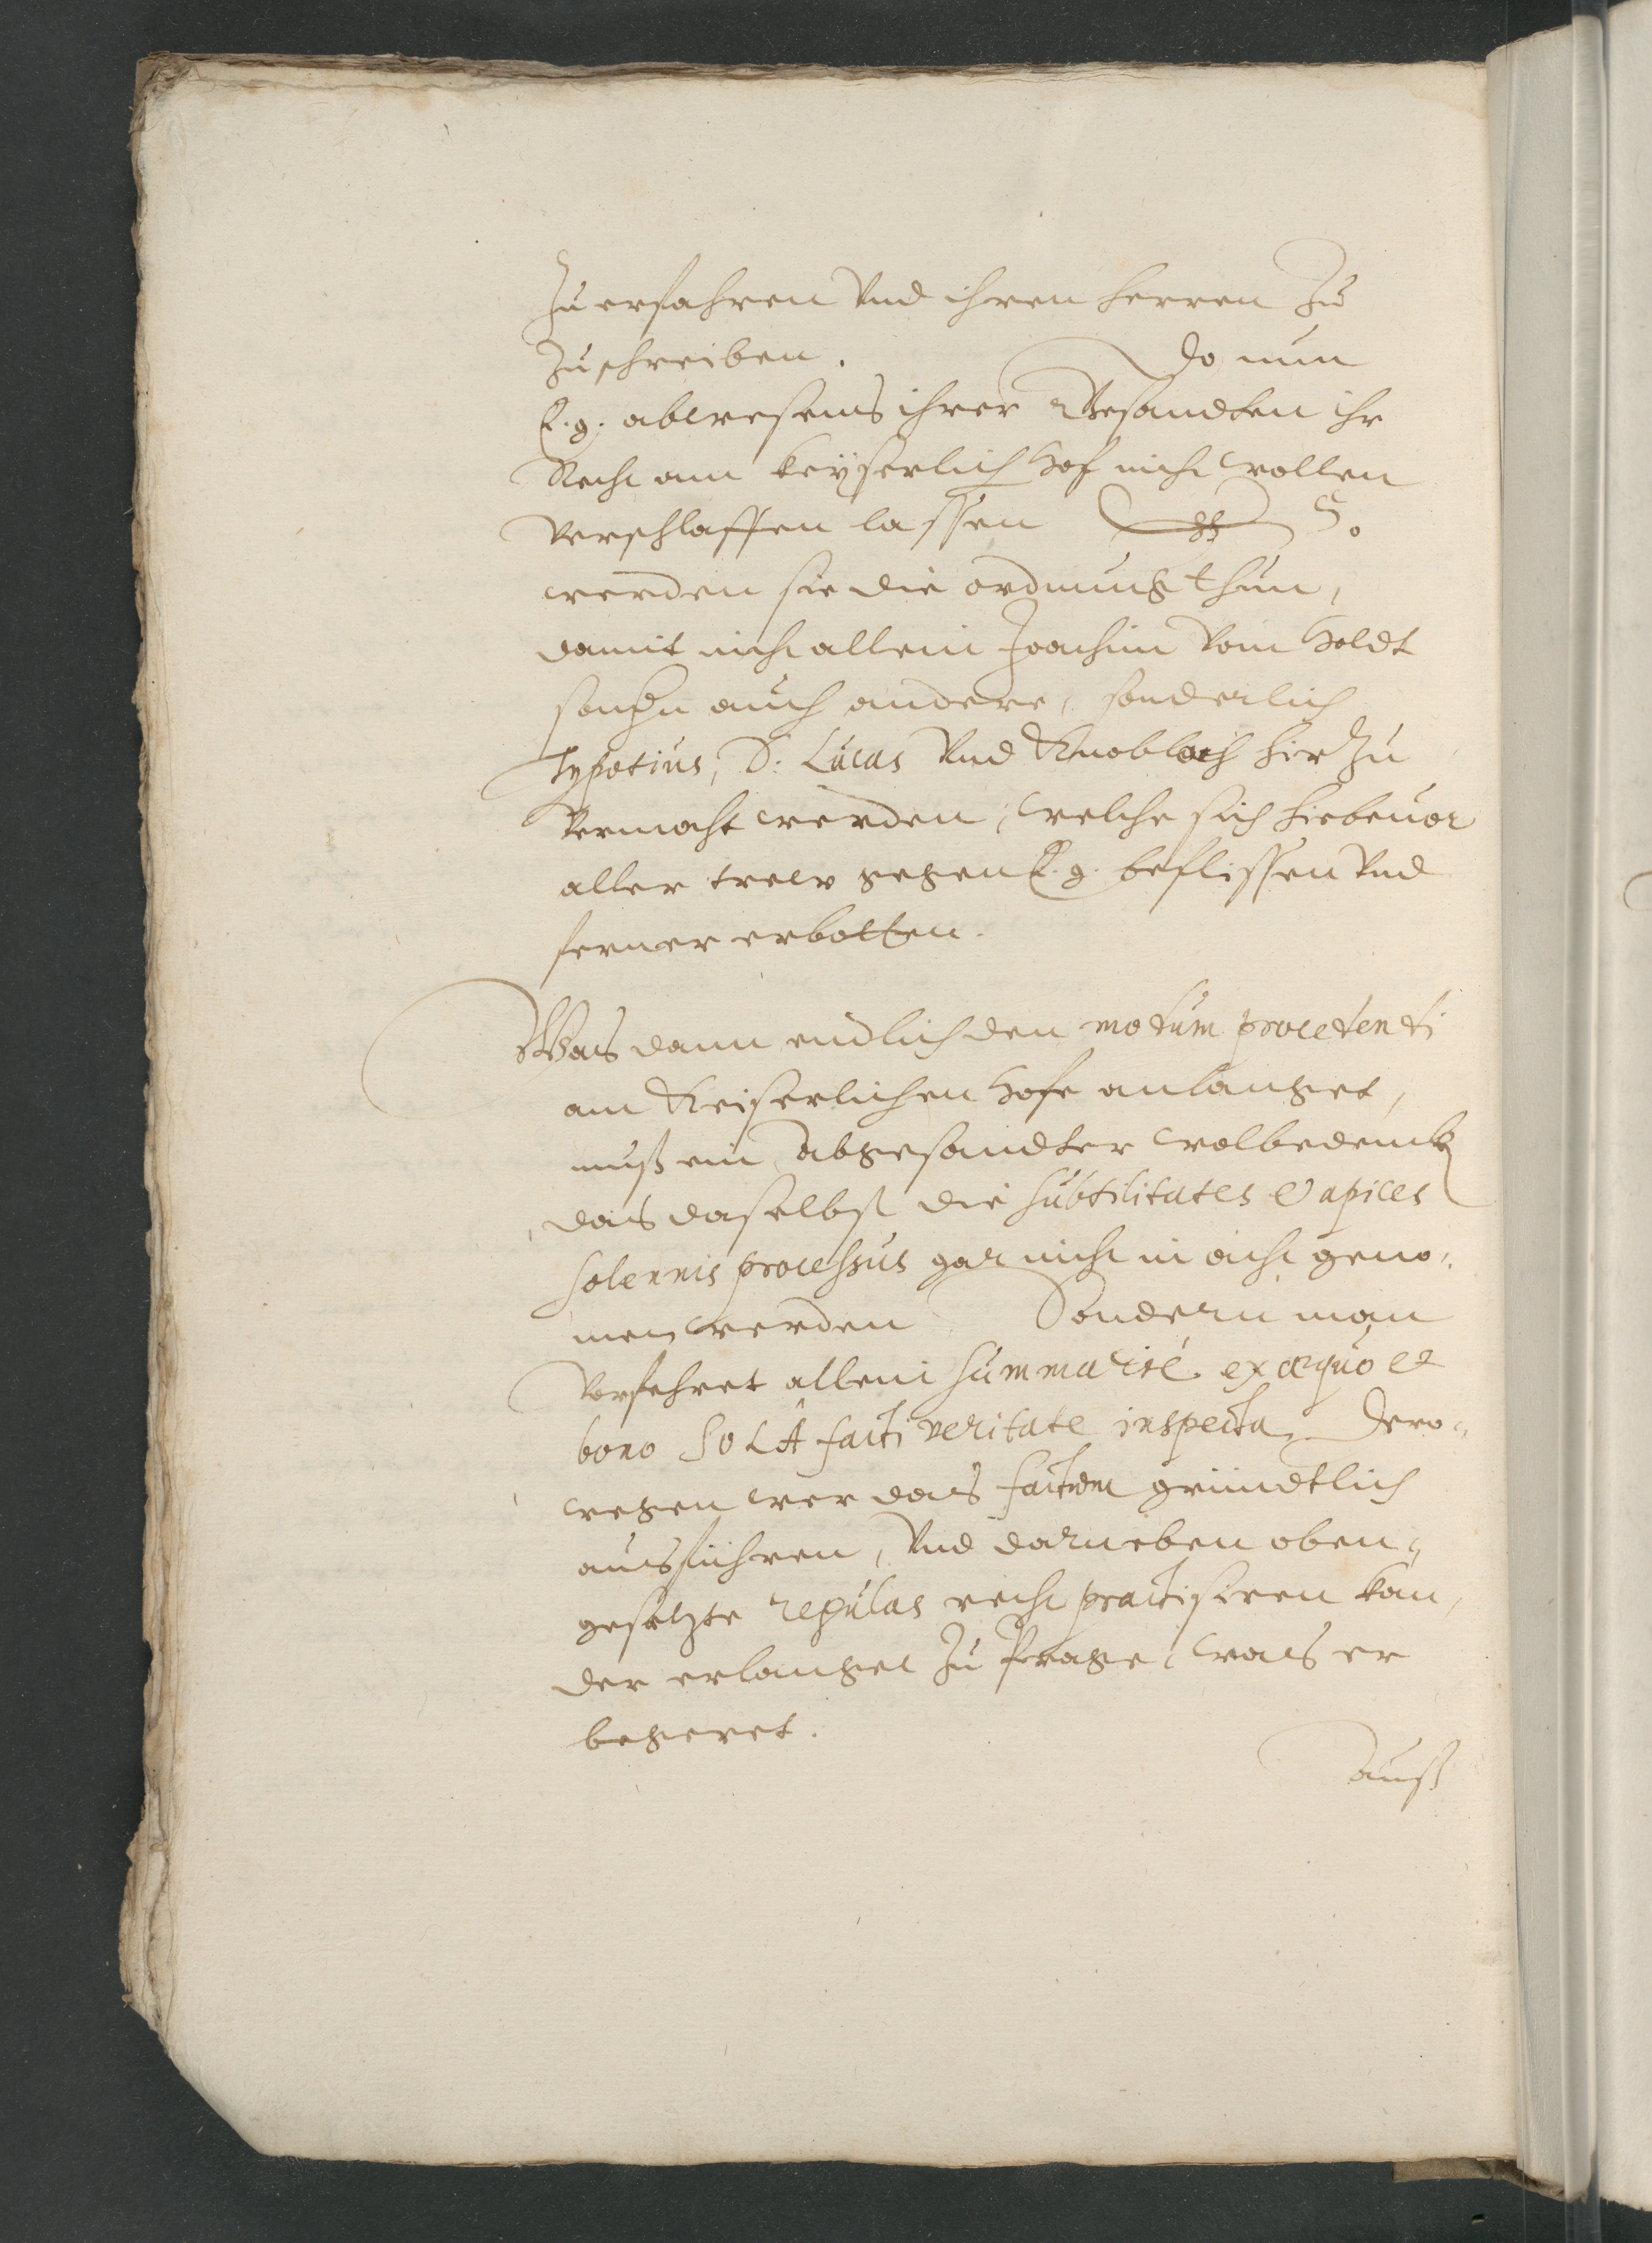 Zu erfahren Vnd ihren herren Zu
Zuschreiben. Do nun
E. g. abwesens ihrer Gesandten ihr
Recht am keyserlich Hof nicht wollen
verschlaffen lassen 5.
werden sie die ordnung thun,
damit nicht allein Joachim vom Holdt
sondern auch andere, sonderlich
Typotius, D: Lucas Vnd Knobloch hierzu
vermocht werden, welche sich hiebeuor
aller trew gegen E. g. beflissen Vnd
ferner erbotten.
Was dann endlich den modum procedendi
am Keiserlichen Hofe anlanget,
muß ein Abgesandter wolbedencken
das daselbst die subtilitates & apices
solennis processus gar nicht in acht geno-
men werden Sondern man
verfehret allein summarié ex æquo et
bono SOLA facti veritate inspecta, Dero-
wegen wer das factum gründtlich
ausführen, Vnd darneben oben-
gesetzte regulas recht practisiren kan,
der erlanget zu Prage, was er
begeret.
Auß